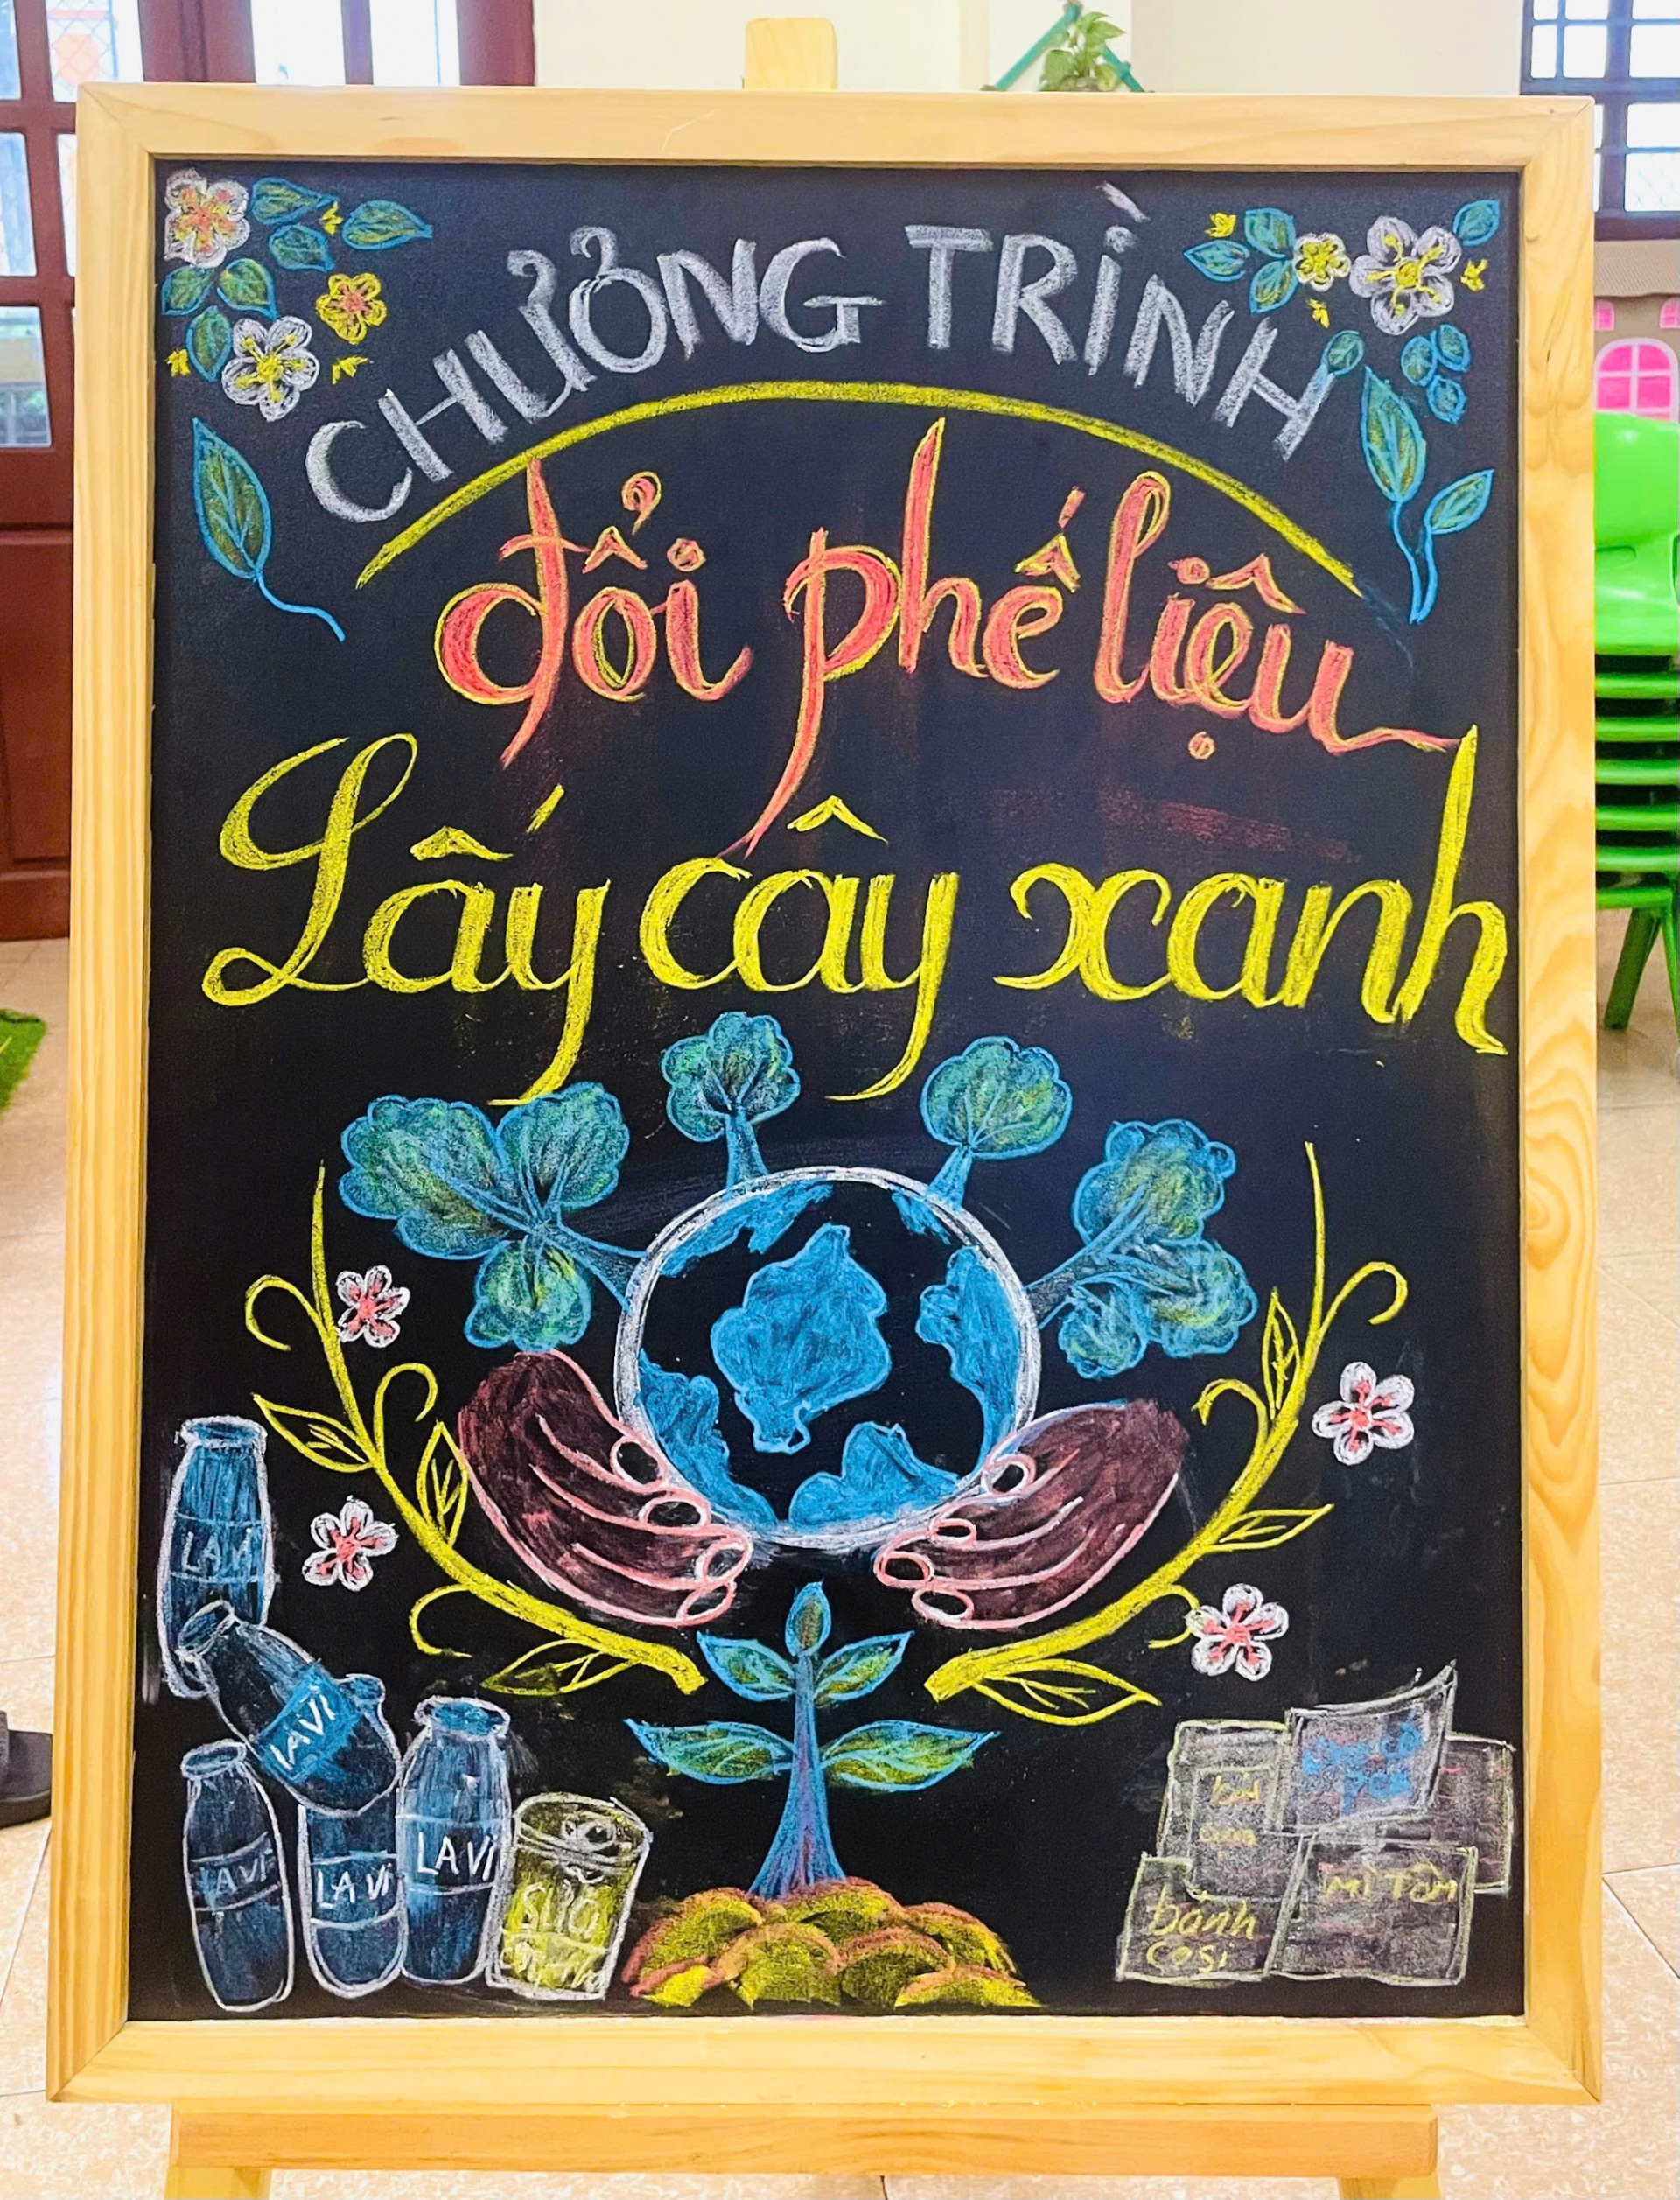 CHƯỞNG TRÌNH
đổi phế liệu
Lấy cây xanh
LAVI
LAVI
LAVI
LAVI
LAVI
SỮA
MÌ TÔM
bánh
cosi